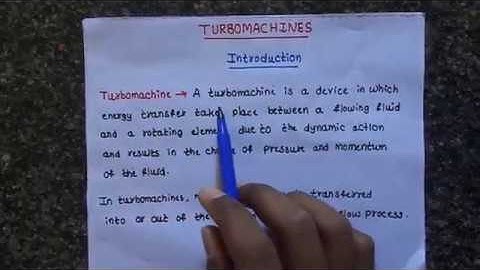 TURBOMACHINES
Introduction
Turbomachine → A turbomachine is a device in which
energy transfer takes place between a flowing fluid
and a rotating due to the dynamic action
and results in the of pressure and momentum
of the fluid.
In turbomachines, transferred
into or out of the flow process.